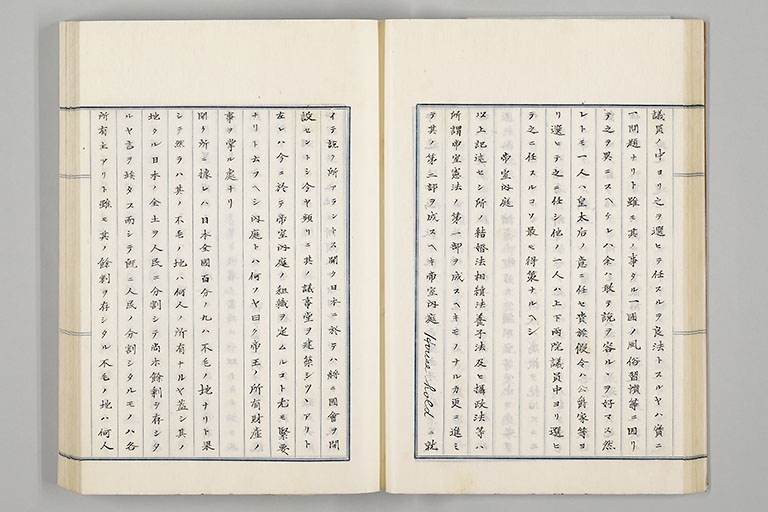 議員ノ中ヨリ之ヲ選ヒテ任スルヲ良法トスルヤハ實ニ
一問題ナリト雖モ其ノ事タル一國ノ風俗習慣等ニ因リ
テ之ヲ異ニスヘケレハ余ハ敢テ説ヲ容ルヽヲ好マス然
レトモ一人ハ皇太后ノ意ニ任セ貴族假令ハ公爵家等ヨ
リ選ヒテ之ニ任シ他ノ一人ハ上下両院議員中ヨリ選ヒ
テ之ニ任スルコソ最モ得策ナルヘシ
帝室内庭
以上記述セシ所ハ結婚法相續法養子法及ヒ攝政法等ハ
所謂帝室憲法ノ第一部ヲ成スヘキモノナルカ更ニ進ミ
テ其ノ第二部ヲ成スヘキ帝室内庭 House hold ニ就
イテ説ク所アラントス聞ク日本ニ於テハ終ニ國會ヲ開
設セントシ今ヤ頻リニ其ノ議事堂ヲ建築シツヽアリト
左レハ今ニ於テ帝室内庭ノ組織ヲ定ムルコト尤モ緊要
ナリト云フヘシ内庭トハ何ソヤ曰ク帝王ノ所有財産ノ
事ヲ掌ル處ナリ
聞ク所ニ據レハ日本全國百分ノ九ハ不毛ノ地ナリト果
シテ然ラハ其ノ不毛ノ地ハ何人ノ所有ナルヤ蓋シ其ノ
地タル日本ノ全土ヲ人民ニ分割シテ尚ホ餘剰ヲ存シタ
ルヤ言ヲ俟タス而シテ既ニ人民ノ分割シタルモノハ各
所有主アリト雖モ其ノ餘剰ヲ存シタル不毛ノ地ハ何人